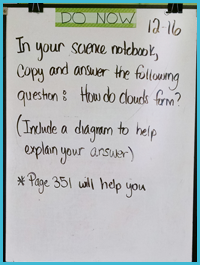 DO NOW
12-16
In your science notebook,
copy and answer the following
question: How do clouds form?
(Include a diagram to help
explain your answer)
* Page 351 will help you